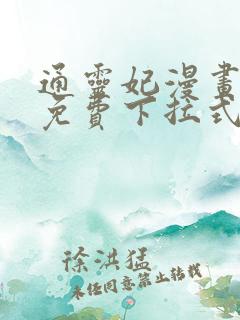 通靈妃漫畫
免費下拉式
徐洪猛
未经同意禁止转载